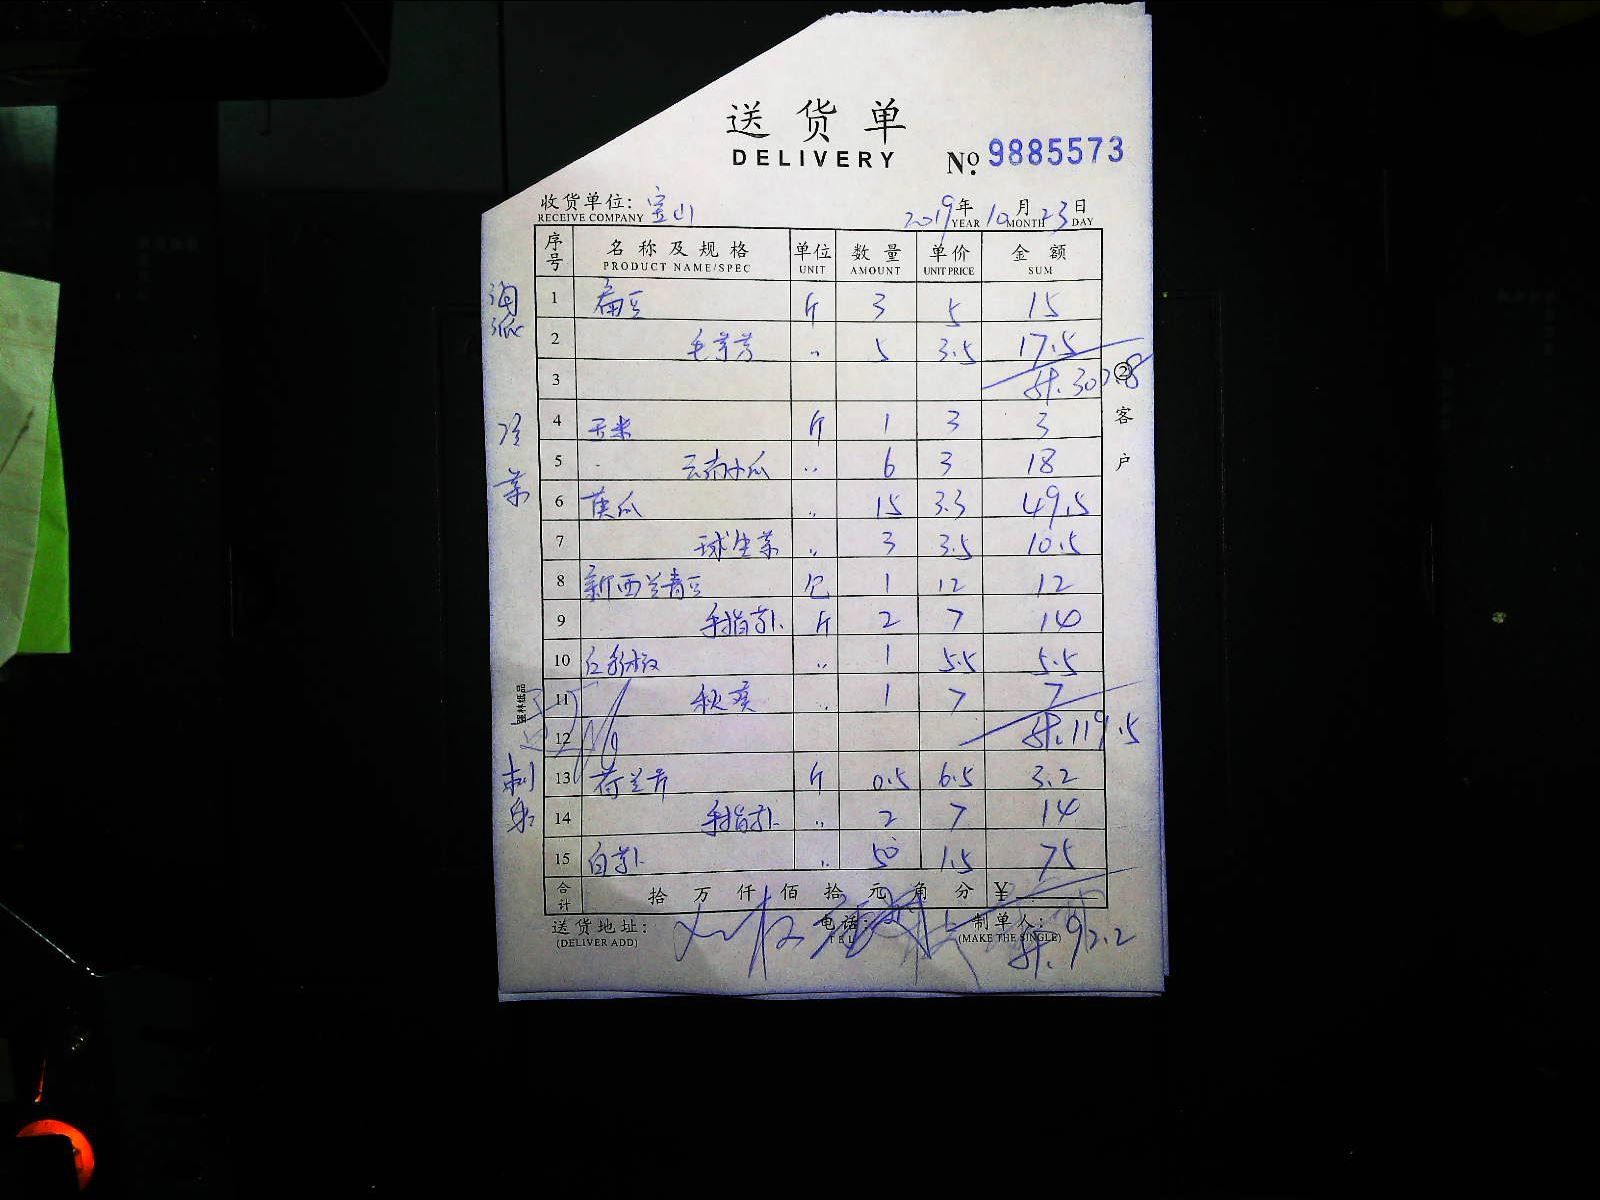 送货单
DELIVERY
No. 9885573
收货单位: 宝山
RECEIVE COMPANY
2019年10月23日
YEAR MONTH DAY
序号 名称及规格 单位 数量 单价 金额
PRODUCT NAME/SPEC UNIT AMOUNT UNIT PRICE SUM
1 扁豆 斤 3 5 15
2 毛芋艿 〃 5 3.5 17.5
3 计.
4 玉米 斤 1 3 3
5 云南小瓜 〃 6 3 18
6 黄瓜 〃 15 3.3 49.5
7 球生菜 〃 3 3.5 10.5
8 新西兰青豆 包 1 12 12
9 手指萝卜 斤 2 7 14
10 红彩椒 〃 1 5.5 5.5
11 秋葵 〃 1 7 7
12 计.119.5
13 荷兰芹 斤 0.5 6.5 3.2
14 手指萝卜 〃 2 7 14
15 白萝卜 〃 50 1.5 75
合计 拾万仟佰拾元角分 ¥
送货地址: 电话: 制单人:
(DELIVER ADD) TEL (MAKE THE SINGLE)
计.92.2
②客户
冷菜
刺身